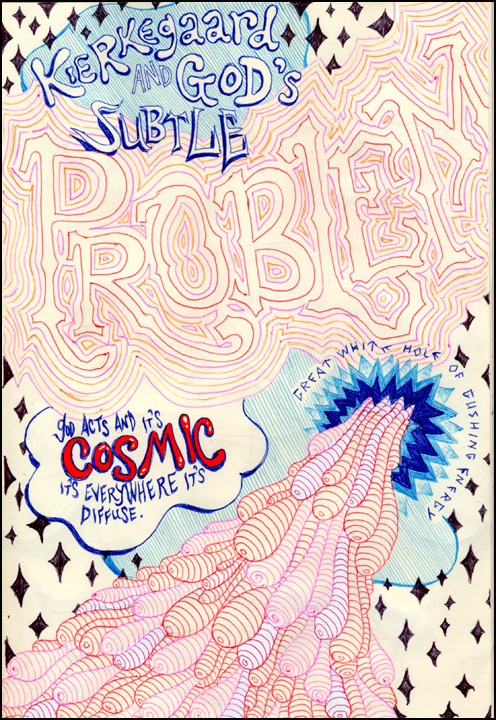 KIERKEgaard
AND GOD'S
SUBTLE
PROBLEM
GREAT WHITE HOLE OF GUSHING ENERGY
gOD ACTS AND IT'S
COSMIC
IT'S EVERYWHERE IT'S
DIFFUSE.